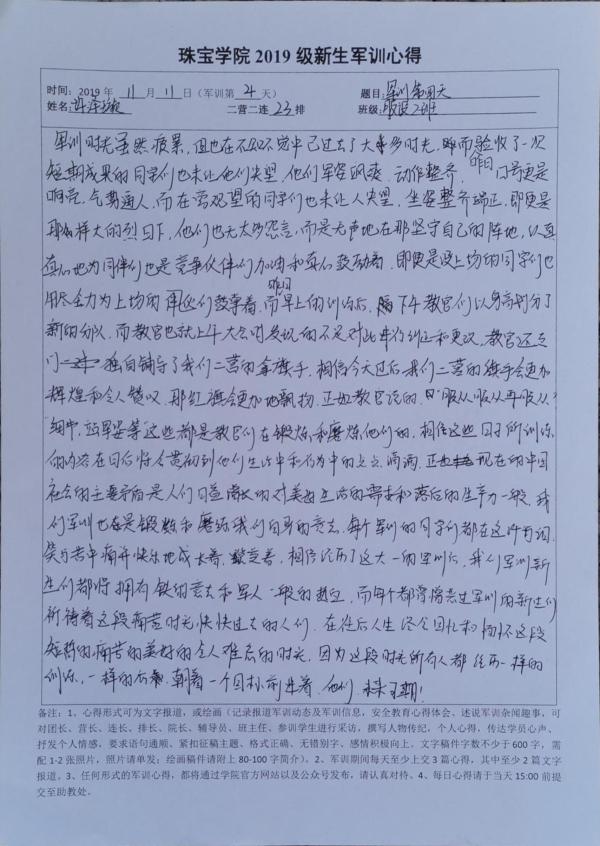 珠宝学院 2019 级新生军训心得
时间：2019 年 11 月 11 日（军训第 4 天） 题目：军训第四天
姓名： 二营二连 23 排 班级：服设2班
军训时光虽然疲累，但也在不知不觉中已过去了大多时光，昨而验收了一次
短期成果的同学们也未让他们失望，他们军容飒爽，动作整齐，昨日口号更是
响亮，气势逼人，而在旁观望的同学们也未让人失望，坐姿整齐端正，即便是
那么样大的烈日下，他们也无太多怨言，而是无声地在那坚守自己的阵地，认真
真心地为同伴们也是竞争伙伴们加油和真心鼓励着，即更是没上场的同学们也
用尽全力为上场的伙们鼓掌着，而昨日早上的训练后，下午教官们以身高划分了
新的分队，而教官也就上午大会时发现的不足对此进行纠正和更改，教官还专
门独自辅导了我们二营的拿旗手，相信今天过后我们二营的旗手会更加
辉煌和令人赞叹，那红旗会更加地飘扬，正如教官说的，“服从服从再服从”
细节，站军姿等这些都是教官们在锻炼和磨炼他们的，相信这些日子所训练
的内容在日后将会贯彻到他们生活中和行为中的点点滴滴，现在的中国
社会的主要矛盾是人们日益增长的对美好生活的需要和落后的生产力一般，我
们军训也在是锻炼和磨练我们自身的意志，每个军训的同学们都在这
笑与苦中痛并快乐地成长着，相信经历了这大一的军训后，我们军训新
生们都将拥有铁的意志和军人一般的，而每个都当过军训的新生们
祈祷着这段痛苦时光快快过去的人们，在往后人生终会回忆和怀这段
短暂的痛苦的美好的令人难忘的时光，因为这段时光所有人都经历一样的
训练，一样的，朝着一个目标前进着，他们，未来可期！
备注：1、心得形式可为文字报道，或绘画（记录报道军训动态及军训信息，安全教育心得体会、述说军训杂闻趣事，可
对团长、营长、连长、排长、院长、辅导员、班主任、参训学生进行采访，撰写人物传纪，个人心得，传达学员心声、
抒发个人情感，要求语句通顺、紧扣征稿主题、格式正确、无错别字、感情积极向上。文字稿件字数不少于 600 字，需
配 1-2 张照片，照片请单发；绘画稿件请附上 80-100 字简介）。2、军训期间每天至少上交 3 篇心得，其中至少 2 篇文字
报道。3、任何形式的军训心得，都将通过学院官方网站以及公众号发布，请认真对待。4、每日心得请于当天 15:00 前提
交至助教处。